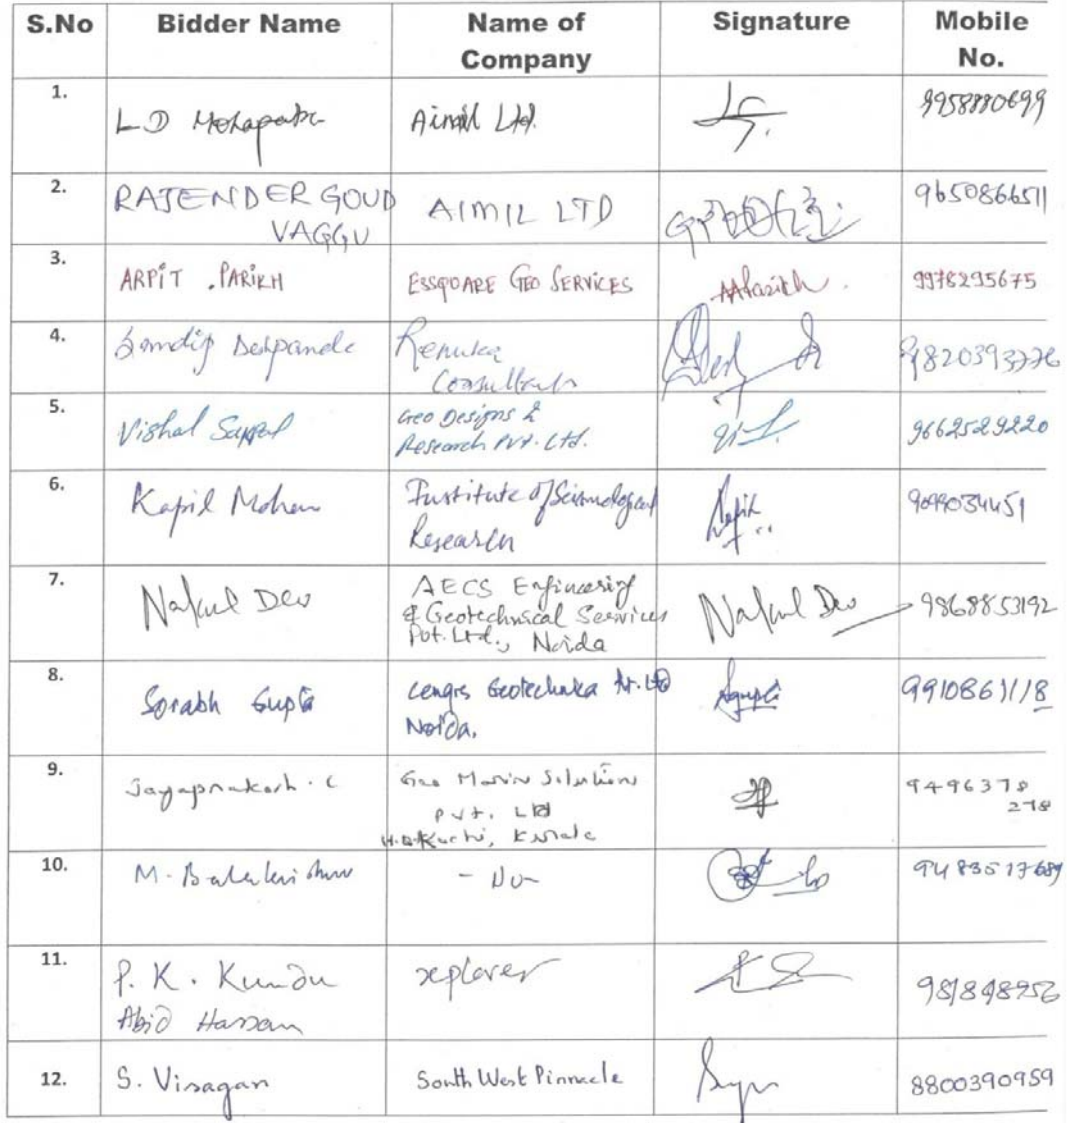 S.No Bidder Name Name of Company Signature Mobile No.
1. L D Mohapatra Aimil Ltd. 9958880699
2. RAJENDER GOUD VAGGU AIMIL LTD 9650866511
3. ARPIT . PARIKH ESSQUARE GEO SERVICES AAParikh. 9978295675
4. Sandip Deshpande Renuka Consultants
5. Vishal Geo Designs & Research Pvt. Ltd. 9662529220
6. Kapil Mohan Institute of Seismological Research
7. Nakul Dev AECS Engineering & Geotechnical Services Pvt. Ltd., Noida Nakul Dev 9868853192
8. Sorabh Gupta Cengrs Geotechnica Pvt. Ltd Noida. 9910861118
9. Jayaprakash. C Geo Marine Solutions Pvt. Ltd H.O Kochi, Kerala 9496378 278
10. M. Balakrishnan - Do -
11. P. K. Kundu Abid Hassan xplorer
12. S. Visagan South West Pinnacle 8800390959